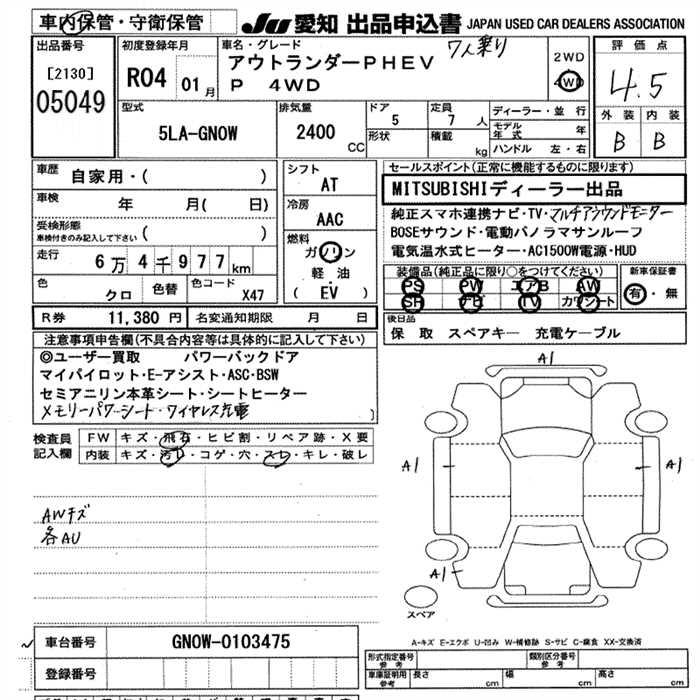 車内保管・守衛保管
JU 愛知 出品申込書 JAPAN USED CAR DEALERS ASSOCIATION
出品番号
[2130]
05049
初度登録年月
R04 01月
車名・グレード
アウトランダーPHEV 7人乗り
P 4WD
2WD
4WD
評価点
4.5
外装 内装
B B
型式
5LA-GN0W
排気量
2400 CC
ドア
5
形状
定員
7 人
積載
kg
ディーラー・並行
モデル年式 年
ハンドル 左・右
車歴 自家用・( )
車検 年 月( 日)
受検形態
車検付きのみ記入して下さい ( )
走行 6万4千977km
色 クロ 色替 色コード X47
シフト
AT
冷房
AAC
燃料
ガソリン
軽油
( EV )
セールスポイント(正常に機能するものに限ります)
MITSUBISHIディーラー出品
純正スマホ連携ナビ・TV・マルチアラウンドモニター
BOSEサウンド・電動パノラマサンルーフ
電気温水式ヒーター・AC1500W電源・HUD
装備品(純正品に限り○をつけてください)
PS PW エアB AW
SH ナビ TV カワシート
新車保証書
有・無
R券 11,380円 名変通知期限 月 日
後日品
保 取 スペアキー 充電ケーブル
注意事項申告欄(不具合内容等は具体的に記入して下さい)
◎ユーザー買取 パワーバックドア
マイパイロット・E-アシスト・ASC・BSW
セミアニリン本革シート・シートヒーター
メモリーパワーシート・ワイヤレス充電 )
検査員記入欄
FW キズ・飛石・ヒビ割・リペア跡・X要
内装 キズ・汚レ・コゲ・穴・スレ・キレ・破レ
AWキズ
各AU
A1
A1
A1
A1
スペア
車台番号 GN0W-0103475
登録番号
A-キズ E-エクボ U-凹み W-補修跡 S-サビ C-腐食 XX-交換済
形式指定番号 参考
類別区分番号 参考
車庫証明用 参考 長さ cm 幅 cm 高さ cm